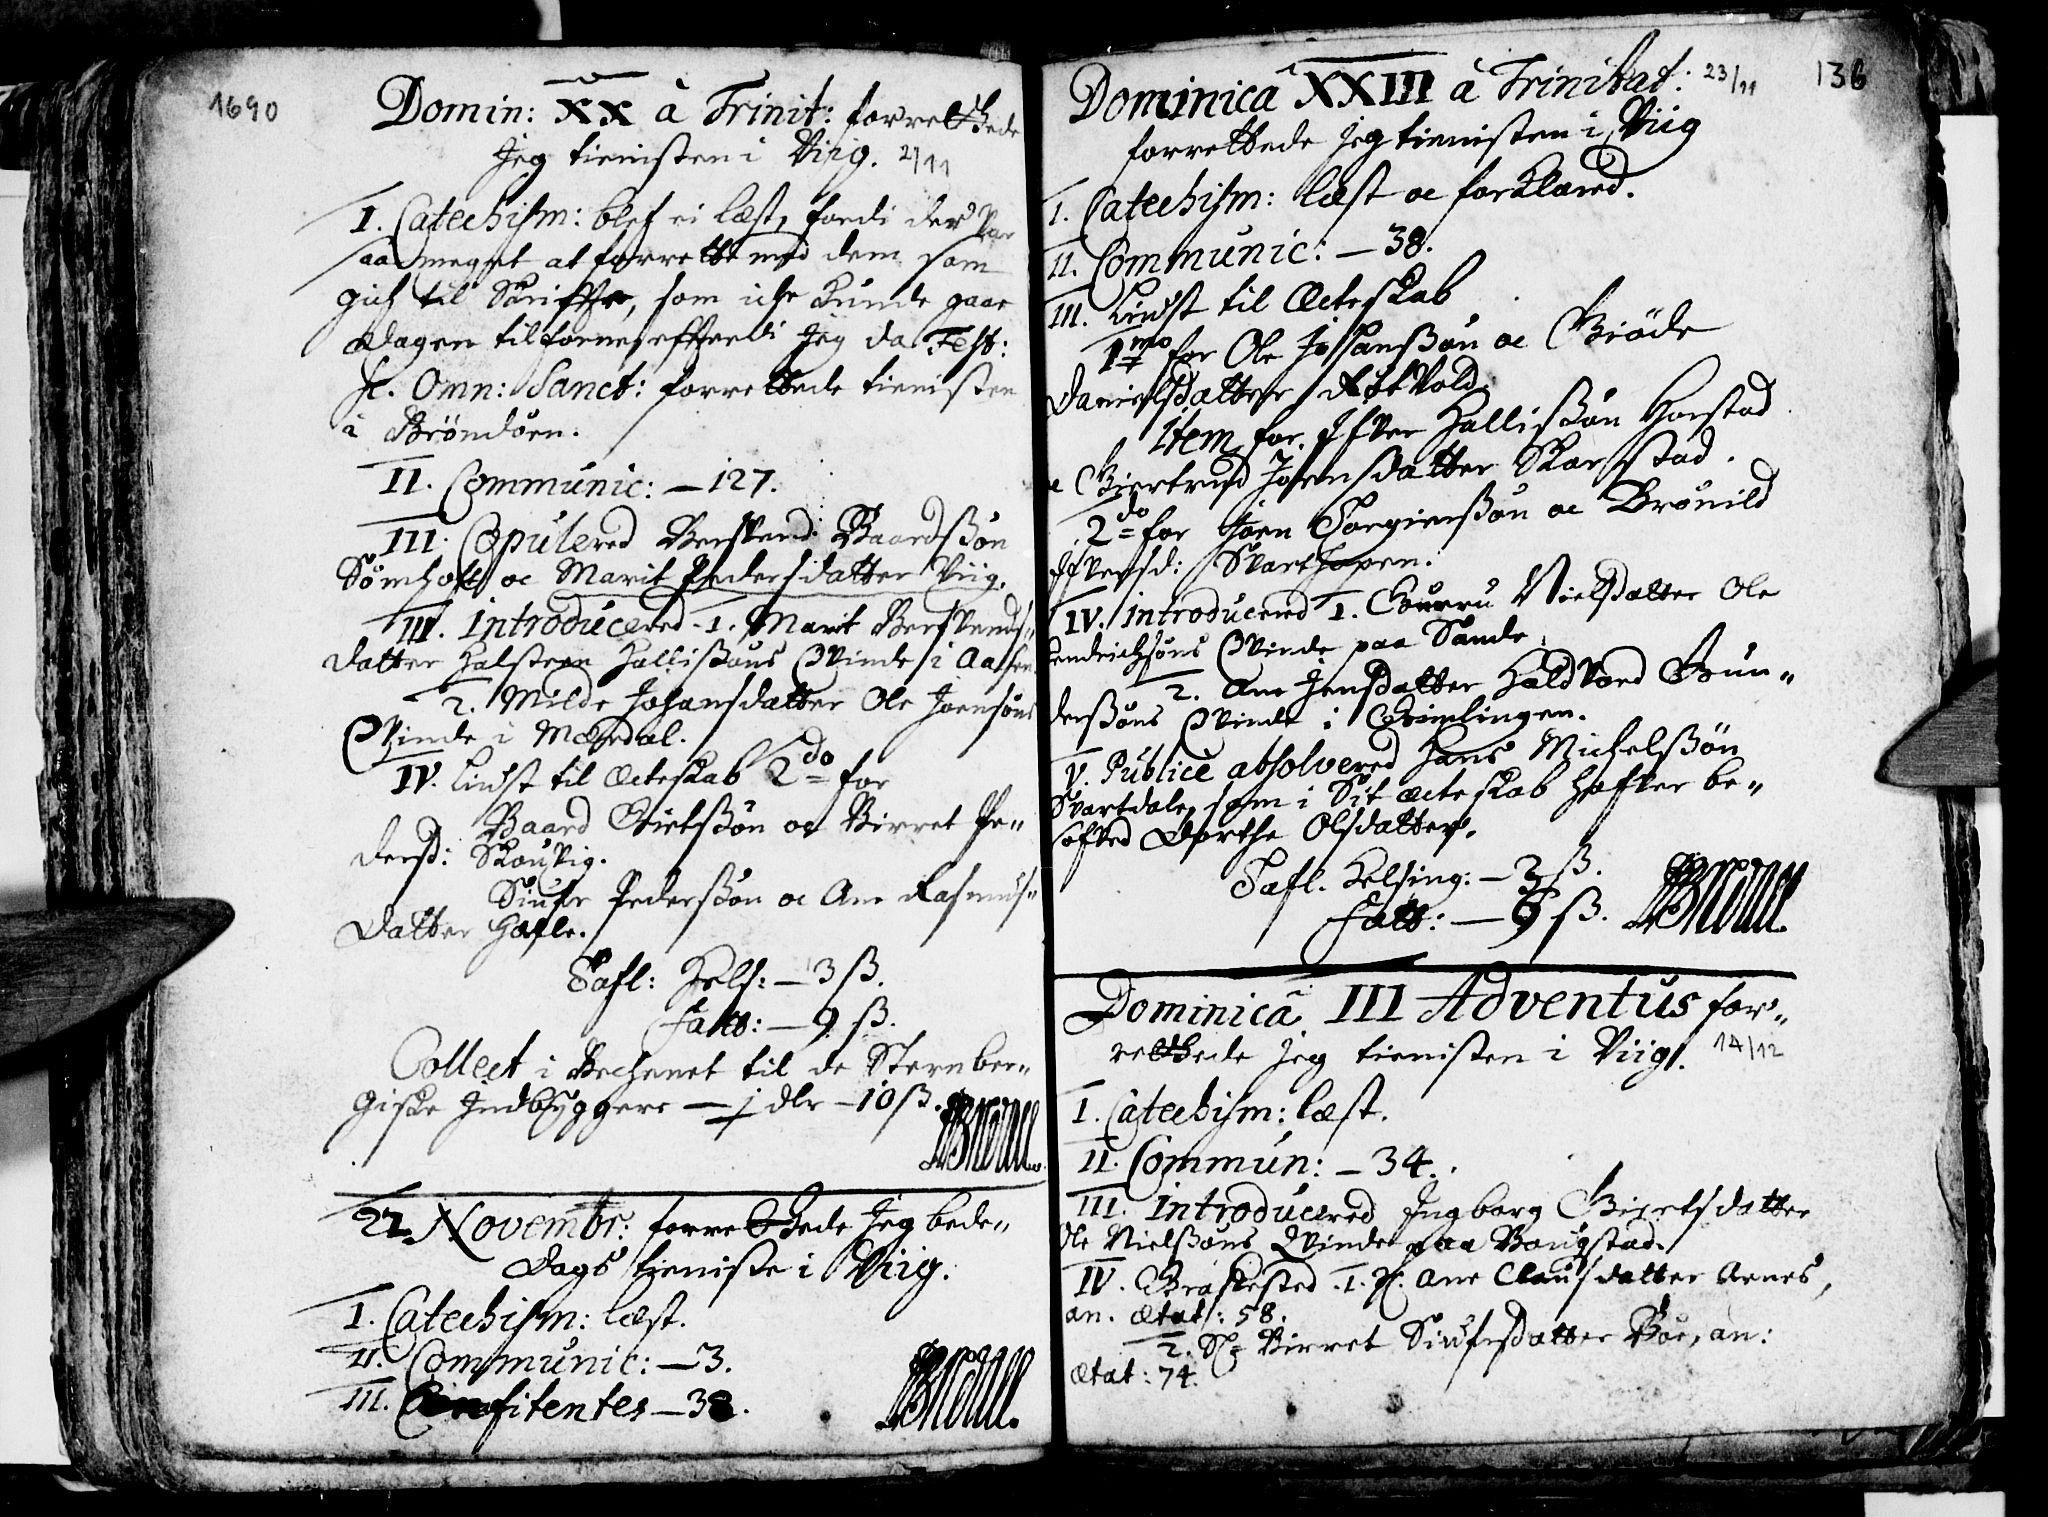 1690
Domin: XX à Trinit: forrettede
Jeg tienisten i Viig. 2/11
I. Catechism: blef ei læst, fordi der var
saa meget at forrette med dem som
gich til Skriffte, som iche kunde gaae
dagen tilforne, effterdi Jeg da Fest:
Omn: Sanct: forrettede tienisten
i Brøndöen.
II. Communic: – 127.
III. Copulered Berdvend Baardssøn
Sømhofft oc Marit Pedersdatter Viig.
III. Introducered 1. Marit Berdvends-
datter Halsteen Hallissøns Qvinde i Aasen
2. Milde Johansdatter Ole Joensøns
Qvinde i Mæredal.
IV. Liust til Ecteskab 2do for
Baard Eriikssøn oc Birret Pe-
dersd: Skouvig.
Siufr Pederssøn oc Ane Rasmus-
datter Hafle.
Tafl: Hels: – 3 ß.
Fatt: – 9 ß.
Collect i Bechenet til de Sternber-
giske Indbyggere – 1 dlr – 10 ß.
21. Novembr: forrettede Jeg bede-
Dags tieniste i Viig.
I. Catechism: læst.
II. Communic: – 3.
III. Confitentes – 38.
136
Dominica XXIII à Trinitat: 23/11
forrettede Jeg tienisten i Viig
I. Catechism: læst oc forklared.
II. Communic: – 38.
III. Liust til Ecteskab
1mo for Ole Johanssøn oc Giöde
Danielsdatter Rötvold.
Item for Ifver Hallissøn Horstad
oc Giertrud Joensdatter Skarstad.
2do for Joen Torgierssøn oc Brønild
Ifversd: Svarthopen.
IV. Introducered 1. Gurru Nielsdatter Ole
Hendrichsøns Qvinde paa Sande
2. Ane Jensdatter Haldvard Gun-
derssøns Qvinde i Grimlingen.
V. Publicè absolvered Hans Michelssøn
Svartdale, som i Sit Ecteskab hafver be-
sofved Dorthe Olsdatter.
Tafl. Helsing: – 3 ß.
Fatt: – 9 ß.
Dominica III Adventus for-
rettede Jeg tienisten i Viig. 14/12
I. Catechism: læst.
II. Commun: – 34.
III. Introducered Ingborg Giertsdatter
Ole Nielssøns Qvinde paa Baugstad.
IV. Begrafvested 1. Ane Clausdatter Aarnes,
an. ætat: 58.
2. Birret Siufrsdatter Böe, an:
ætat: 74.